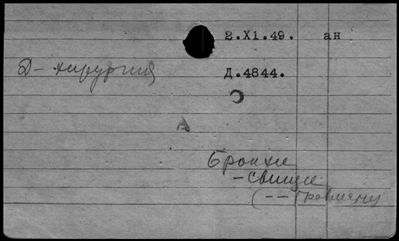 2.XI.49. ан
Д - хирургия
Д.4844.
А
Бронхи
- свищи